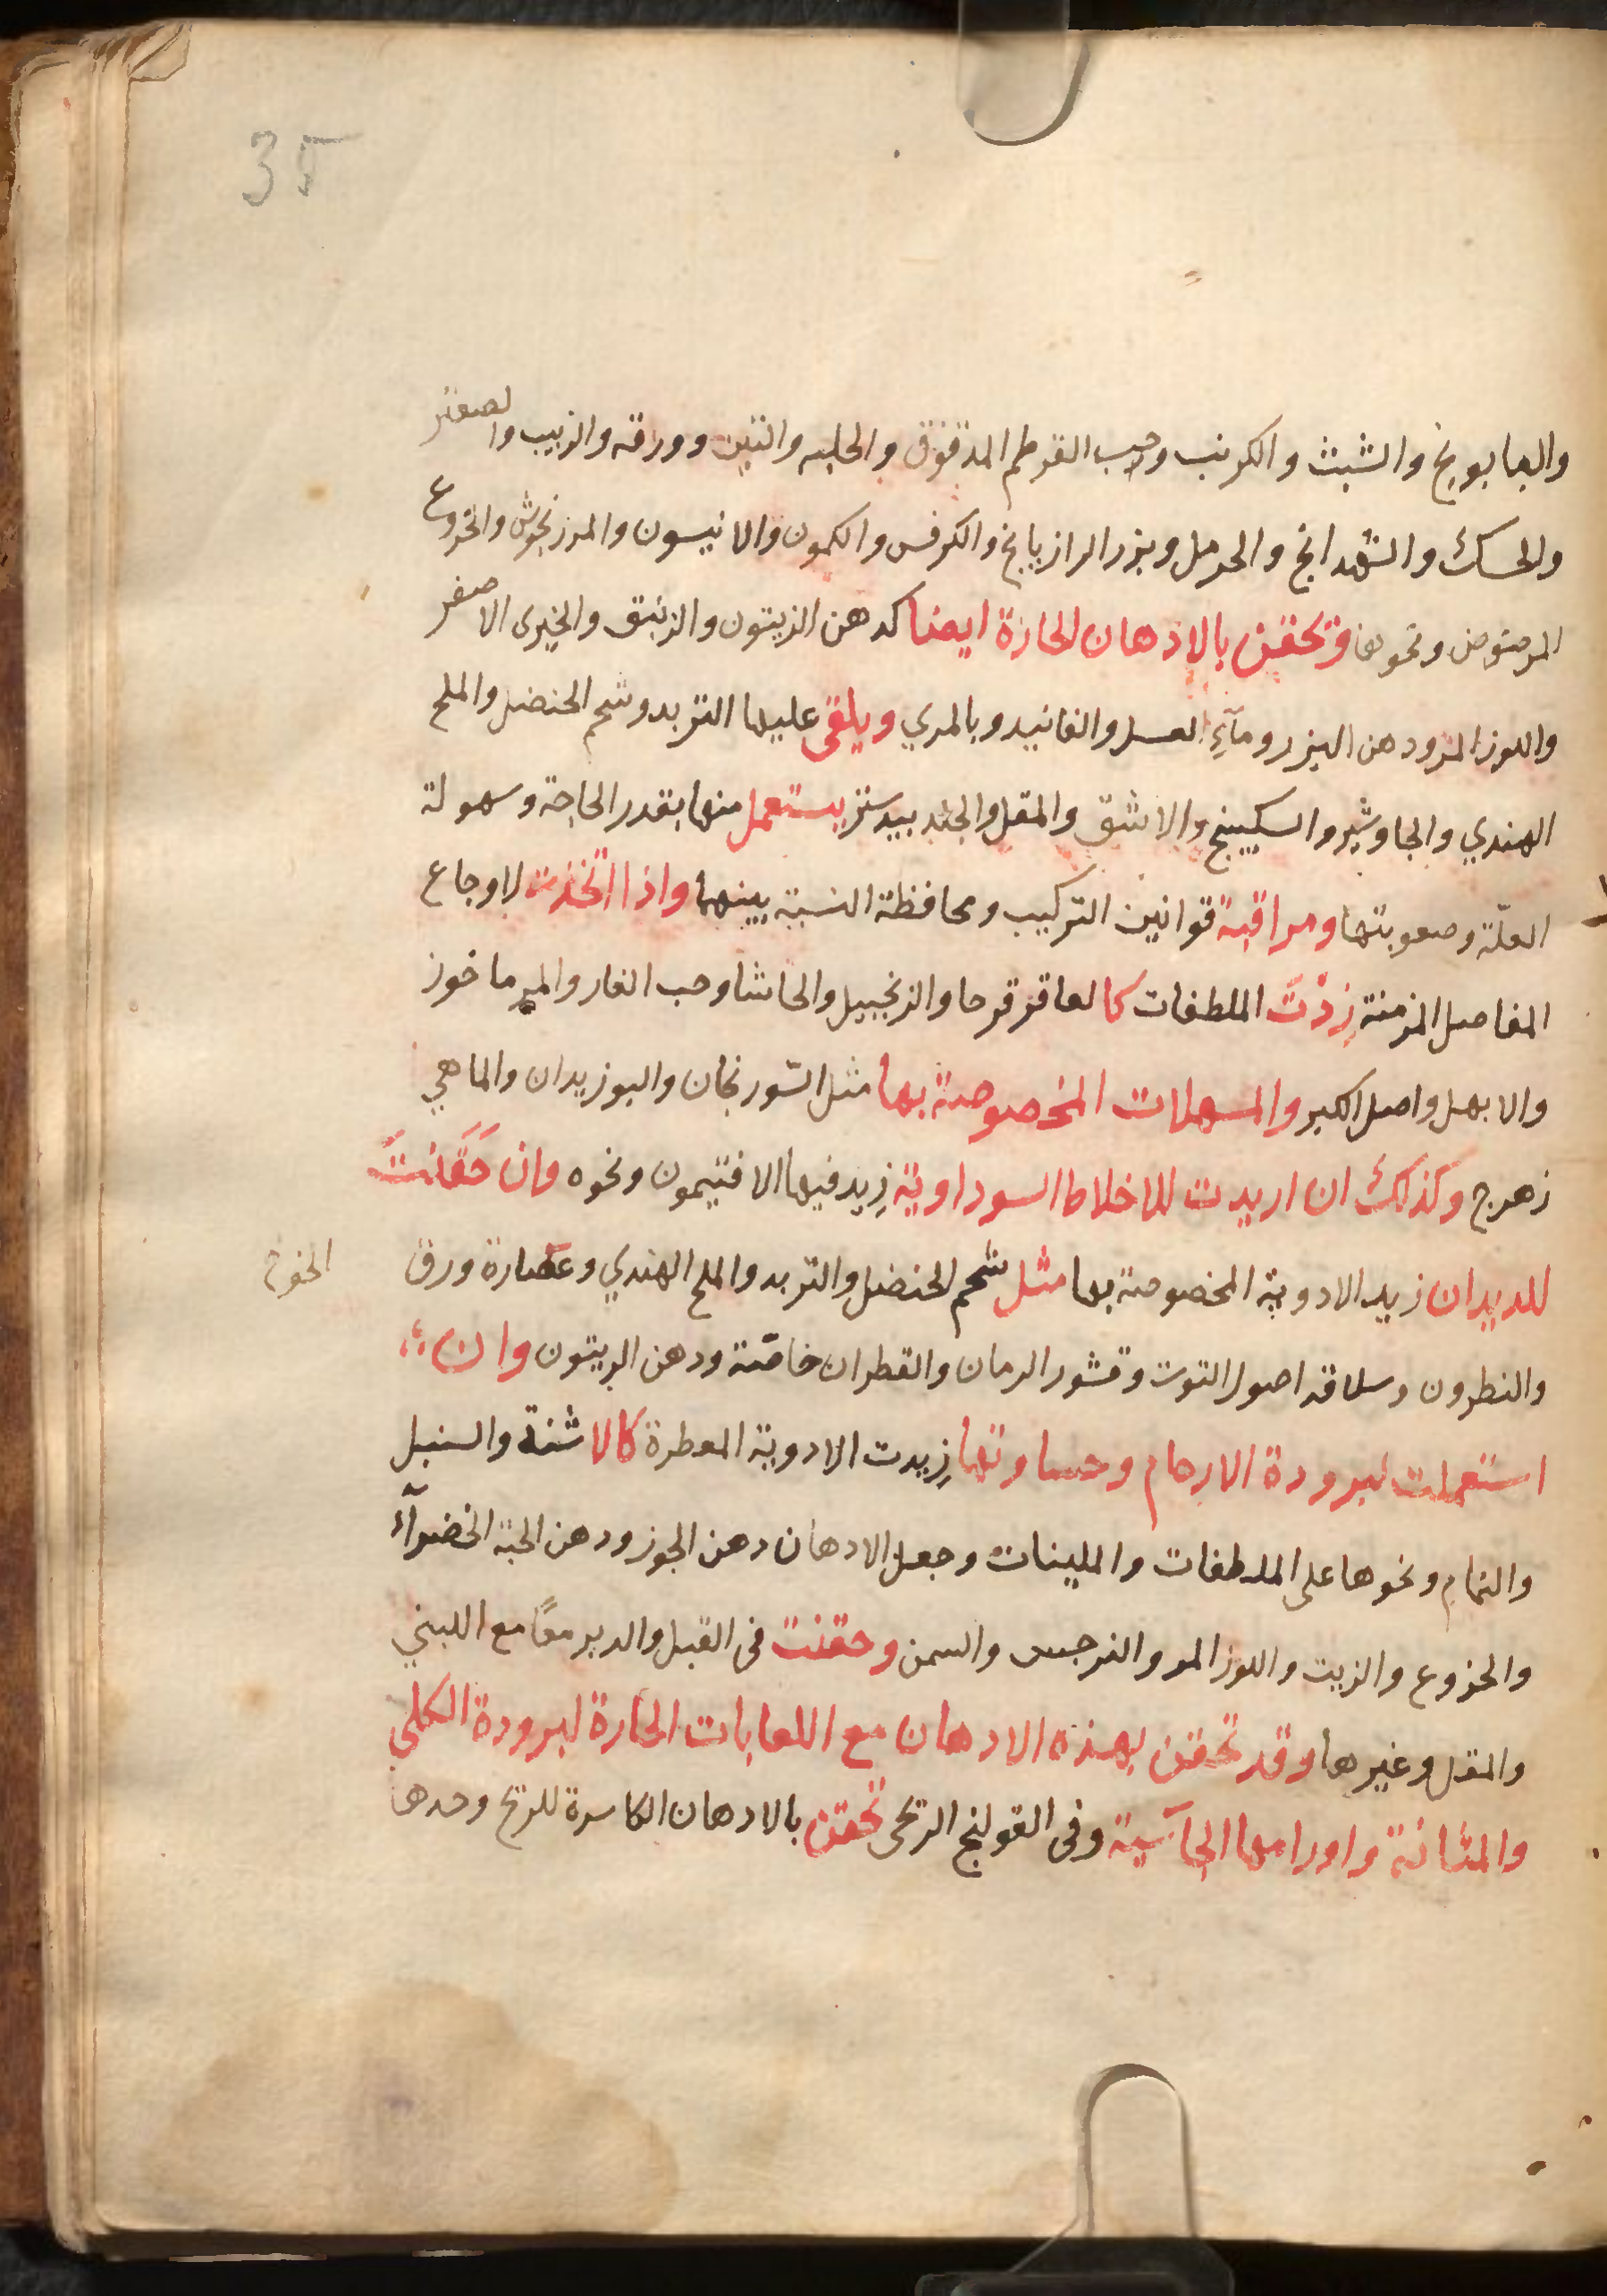 35
والبابونج والشبث والكرنب وحب القرطم المدقوق والحلبه والتين وورقه والزبيب والصعتر
والحسك والشهدانج والحرمل وبزر الرازيانج والكرفس والكمون والانيسون والمرزنجوش والخروع
المرضوض ونحوها وتحقن بالادهان الحارة ايضا كدهن الزيتون والزنبق والخيرى الاصفر
واللوز المر ودهن البزر ومآءِ العسل والفانيد وبالمري ويلقى عليها التربد وشحم الحنضل والملح
الهندي والجاوشير والسكبينج والاشق والمقل والجند بيدستر يستعمل منها بقدر الحاجة وسهولة
العلّة وصعوبتها ومراقبة قوانين التركيب ومحافظة النسبة بينهما واذا اتخذت لاوجاع
المفاصل المزمنة زِدْتَ الملطفات كالعاقر قرحا والزنجبيل والحاشا وحب الغار والمرماخوز
والابهل واصل الكبر والمسهلات المخصوصة بها مثل السّورنجان والبوزيدان والماهي
زهرج وكذلك ان اريدت للاخلاط السوداوية زِيد فيها الافتيمون ونحوه وان حَقَنتَ
للديدان زيد الادوية المخصوصة بها مثل شحم الحنضل والتربد والملح الهندي وعصارة ورق الخوخ
والنطرون وسلاقه اصول التوت وقشور الرمان والقطران خاصّة ودهن الزيتون وان
استعملت لبرودة الارحام وحساوتها زِيدت الادوية المعطرة كالاشنة والسنبل
والنمام ونحوها على الملطفات والملينات وجعل الادهان دهن الجوز ودهن الحبة الخضرآء
والخروع والزيت واللوز المر والنرجس والسمن وحقنت فى القبل والدبر معًا مع اللبني
والمقل وغيرها وقد تحقن بهذه الادهان مع اللعابات الحارة لبرودة الكلي
والمثانة واورامها الجآسية وفى القولنج الريحى تحقن بالادهان الكاسرة للريح وحدها